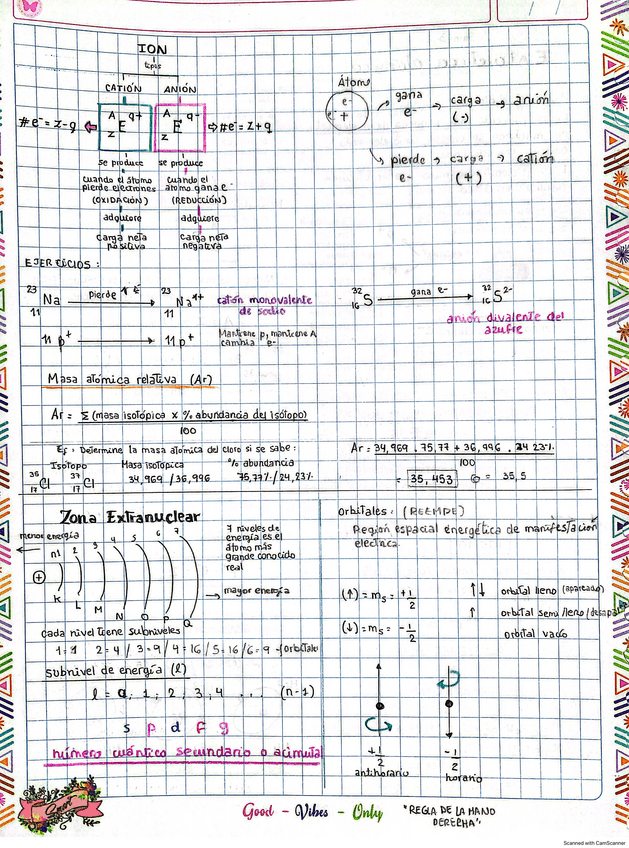 ION
tipos
CATIÓN ANIÓN
#e⁻ = Z-q A E q+ Z A E q- Z #e⁻ = Z+q
se produce se produce
cuando el átomo pierde electrones (OXIDACIÓN)
cuando el átomo gana e⁻ (REDUCCIÓN)
adquiere adquiere
carga neta positiva
carga neta negativa
Átomo
e⁻
e⁻ +
gana e⁻ → carga (-) → anión
pierde e⁻ → carga (+) → catión
EJERCICIOS :
23 Na 11 pierde 1 e⁻ 23 Na¹⁺ 11 catión monovalente de sodio
32 S 16 gana e⁻ 32 S²⁻ 16
anión divalente del azufre
11 p⁺ → 11 p⁺ Mantiene p, mantiene A cambia e⁻
Masa atómica relativa (Ar)
Ar = Σ (masa isotópica x % abundancia del isótopo)
100
Ej: Determine la masa atómica del cloro si se sabe :
Isótopo Masa isotópica % abundancia
17 Cl 37 17 Cl 34,969 / 36,996 75,77% / 24,23%
Ar = 34,969 . 75,77 + 36,996 . 24 23%
100
= 35,453 = 35,5
Zona Extranuclear
menor energía
n1 2 3 4 5 6 7
+
K L M N O P Q
7 niveles de energía es el átomo más grande conocido real
mayor energía
cada nivel tiene subniveles
1 = 1 2 = 4 / 3 = 9 / 4 = 16 / 5 = 16 / 6 = 9
subnivel de energía (l)
l = 0, 1 ; 2 ; 3, 4 ... (n-1)
s p d f g
número cuántico secundario o acimutal
orbitales : (REEMPE)
Región espacial energética de manifestación electrica.
(↑) = ms = +1/2
(↓) = ms = -1/2
↑↓ orbital lleno (apareado)
↑ orbital semi lleno
orbital vacío
+1/2
antihorario
-1/2
horario
"REGLA DE LA MANO DERECHA"
Good - Vibes - Only
Scanned with CamScanner